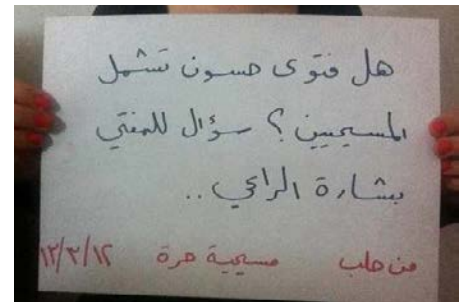 هل فتوى حسون تشمل
المسيحيين؟ سؤال للمفتي
بشارة الراعي..
من حلب مسيحية حرة ١٢/٣/١٢